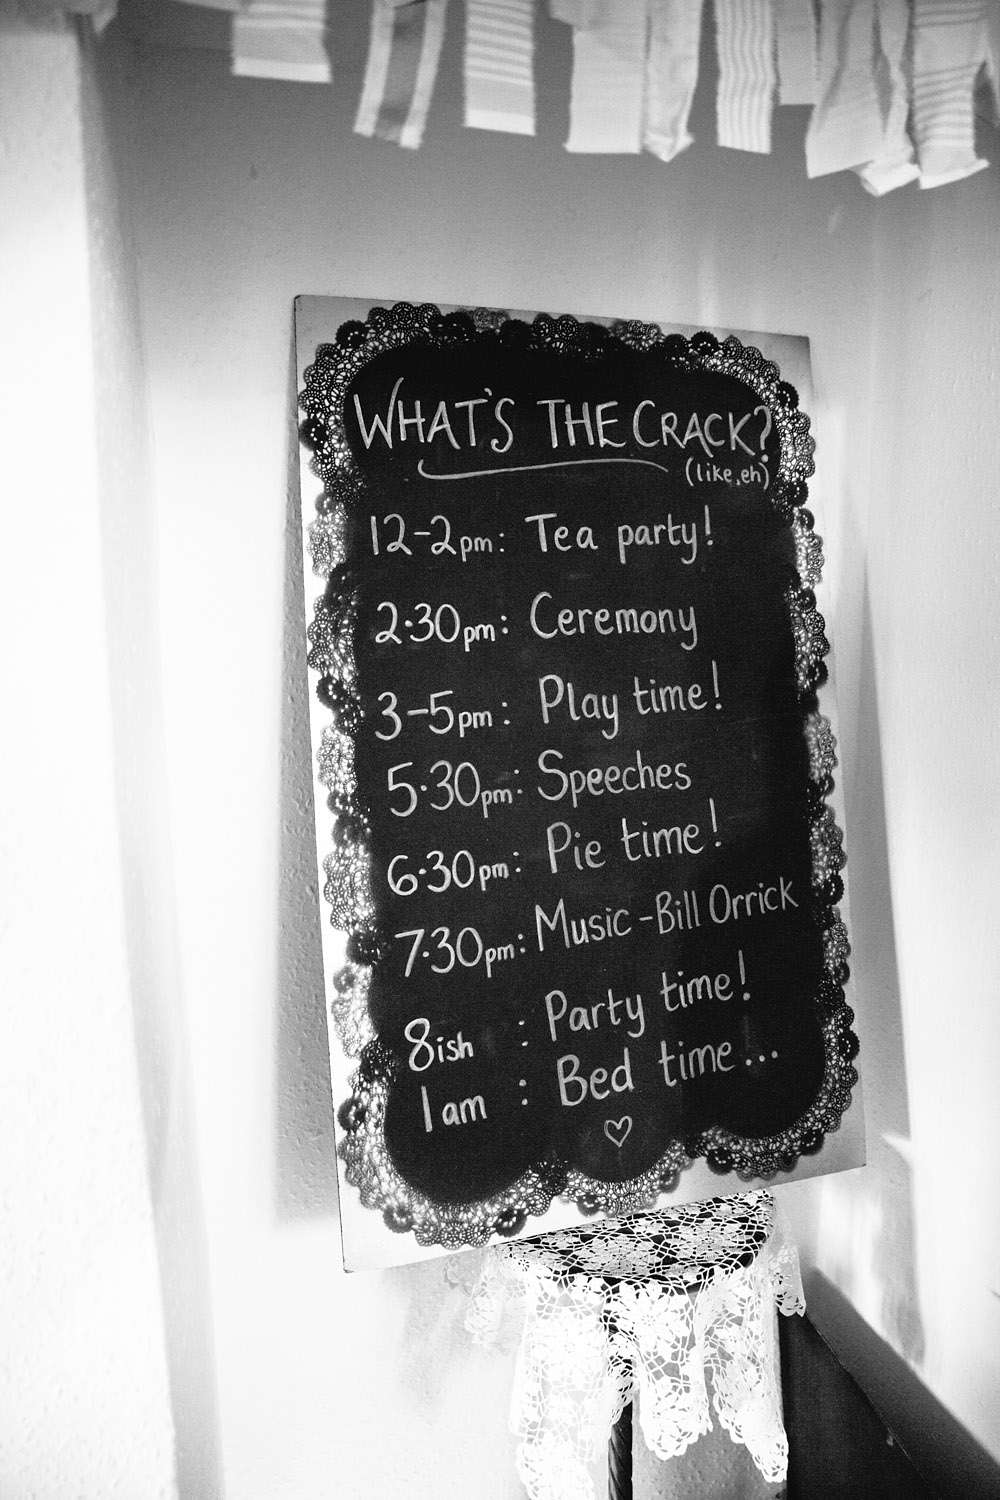 WHAT'S THE CRACK?
(like, eh)
12-2pm: Tea party!
2.30pm: Ceremony
3-5pm: Play time!
5.30pm: Speeches
6.30pm: Pie time!
7.30pm: Music - Bill Orrick
8ish : Party time!
1am : Bed time...